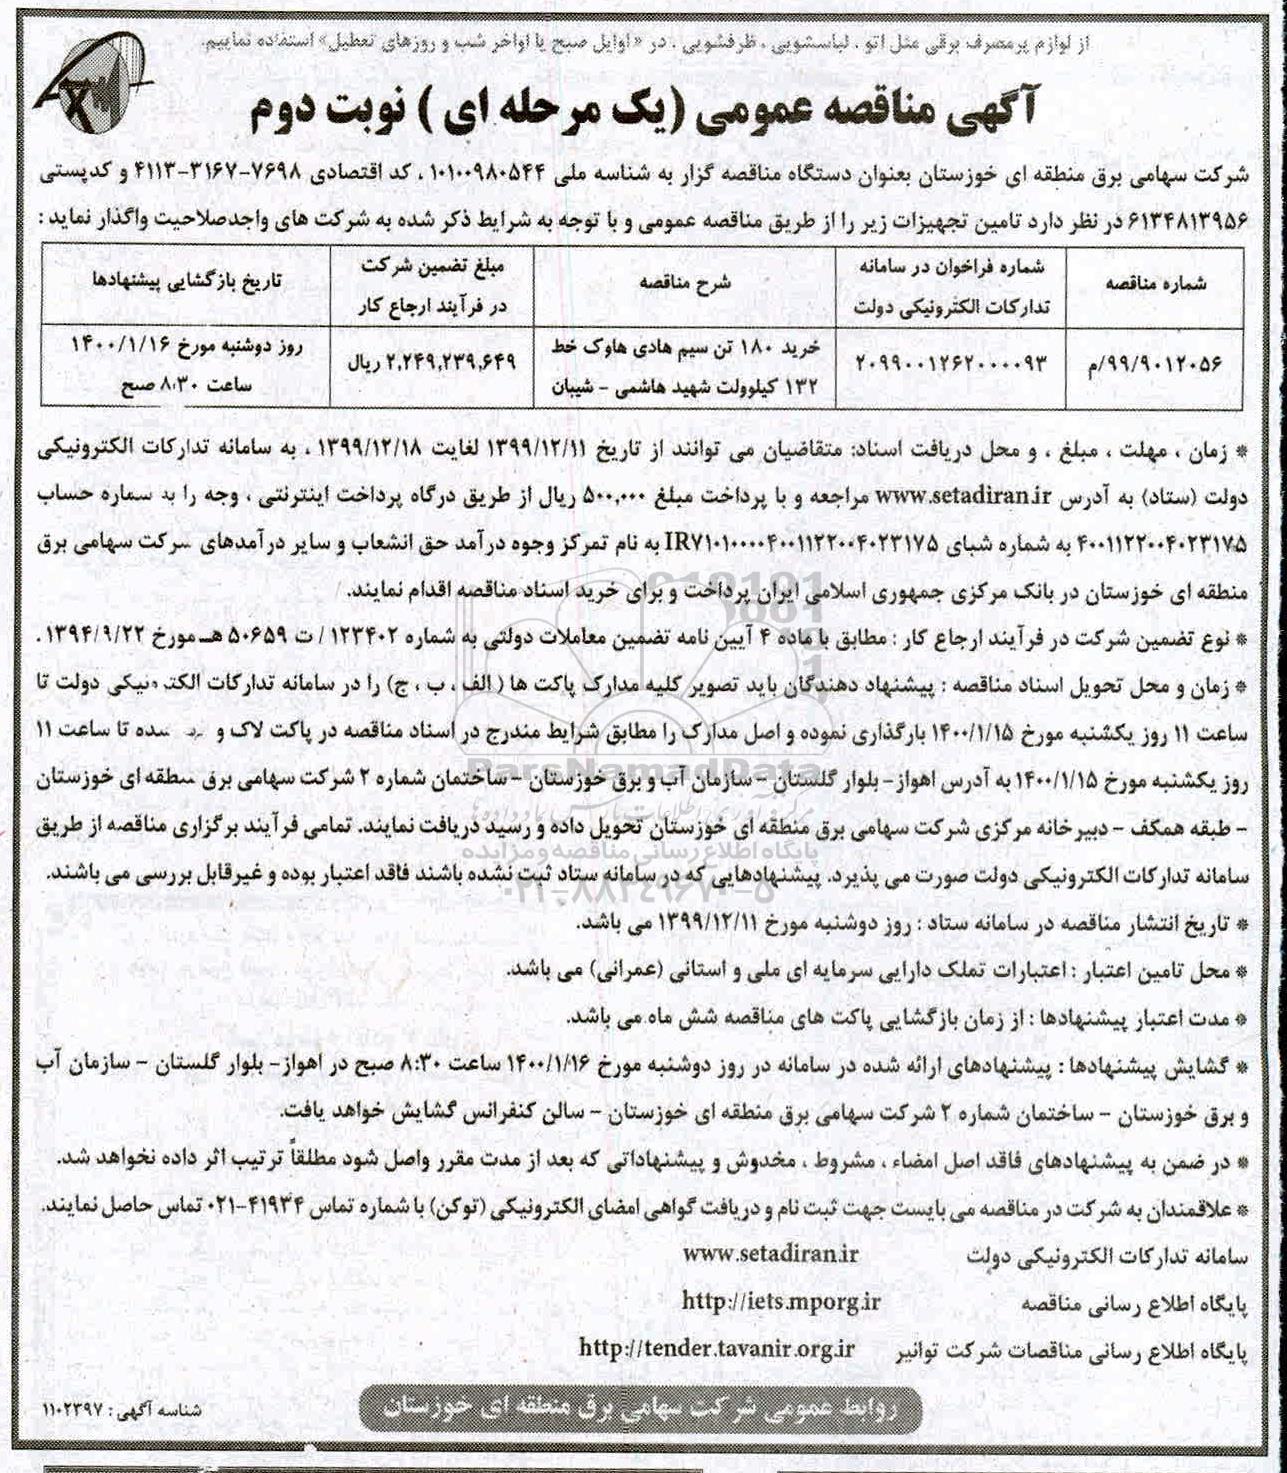 از لوازم پرمصرف برقی مثل اتو ، لباسشویی ، ظرفشویی ، در «اوایل صبح یا اواخر شب و روزهای تعطیل» استفاده نماییم.
آگهی مناقصه عمومی (یک مرحله ای ) نوبت دوم
شرکت سهامی برق منطقه ای خوزستان بعنوان دستگاه مناقصه گزار به شناسه ملی ۱۰۱۰۰۹۸۰۵۴۴ ، کد اقتصادی ۷۶۹۸-۳۱۶۷-۴۱۱۳ و کدپستی
۶۱۳۴۸۱۳۹۵۶ در نظر دارد تامین تجهیزات زیر را از طریق مناقصه عمومی و با توجه به شرایط ذکر شده به شرکت های واجدصلاحیت واگذار نماید :
شماره مناقصه
شماره فراخوان در سامانه
تدارکات الکترونیکی دولت
شرح مناقصه
مبلغ تضمین شرکت
در فرآیند ارجاع کار
تاریخ بازگشایی پیشنهادها
۹۹/۹۰۱۲۰۵۶/م
۲۰۹۹۰۰۱۲۶۲۰۰۰۰۹۳
خرید ۱۸۰ تن سیم هادی هاوک خط
۱۳۲ کیلوولت شهید هاشمی - شیبان
۲,۲۴۹,۲۳۹,۶۴۹ ریال
روز دوشنبه مورخ ۱۴۰۰/۱/۱۶
ساعت ۸:۳۰ صبح
* زمان ، مهلت ، مبلغ ، و محل دریافت اسناد: متقاضیان می توانند از تاریخ ۱۳۹۹/۱۲/۱۱ لغایت ۱۳۹۹/۱۲/۱۸ ، به سامانه تدارکات الکترونیکی
دولت (ستاد) به آدرس www.setadiran.ir مراجعه و با پرداخت مبلغ ۵۰۰,۰۰۰ ریال از طریق درگاه پرداخت اینترنتی ، وجه را به شماره حساب
۴۰۰۱۱۲۲۰۰۴۰۲۳۱۷۵ به شماره شبای IR۷۱۰۱۰۰۰۰۴۰۰۱۱۲۲۰۰۴۰۲۳۱۷۵ به نام تمرکز وجوه درآمد حق انشعاب و سایر درآمدهای شرکت سهامی برق
منطقه ای خوزستان در بانک مرکزی جمهوری اسلامی ایران پرداخت و برای خرید اسناد مناقصه اقدام نمایند.
* نوع تضمین شرکت در فرآیند ارجاع کار : مطابق با ماده ۴ آیین نامه تضمین معاملات دولتی به شماره ۱۲۳۴۰۲ / ت ۵۰۶۵۹ هـ مورخ ۱۳۹۴/۹/۲۲ .
* زمان و محل تحویل اسناد مناقصه : پیشنهاد دهندگان باید تصویر کلیه مدارک پاکت ها ( الف ، ب ، ج) را در سامانه تدارکات الکترونیکی دولت تا
ساعت ۱۱ روز یکشنبه مورخ ۱۴۰۰/۱/۱۵ بارگذاری نموده و اصل مدارک را مطابق شرایط مندرج در اسناد مناقصه در پاکت لاک و شده تا ساعت ۱۱
روز یکشنبه مورخ ۱۴۰۰/۱/۱۵ به آدرس اهواز- بلوار گلستان - سازمان آب و برق خوزستان - ساختمان شماره ۲ شرکت سهامی برق منطقه ای خوزستان
- طبقه همکف - دبیرخانه مرکزی شرکت سهامی برق منطقه ای خوزستان تحویل داده و رسید دریافت نمایند. تمامی فرآیند برگزاری مناقصه از طریق
سامانه تدارکات الکترونیکی دولت صورت می پذیرد. پیشنهادهایی که در سامانه ستاد ثبت نشده باشند فاقد اعتبار بوده و غیرقابل بررسی می باشند.
* تاریخ انتشار مناقصه در سامانه ستاد : روز دوشنبه مورخ ۱۳۹۹/۱۲/۱۱ می باشد.
* محل تامین اعتبار : اعتبارات تملک دارایی سرمایه ای ملی و استانی (عمرانی) می باشد.
* مدت اعتبار پیشنهادها : از زمان بازگشایی پاکت های مناقصه شش ماه می باشد.
* گشایش پیشنهادها : پیشنهادهای ارائه شده در سامانه در روز دوشنبه مورخ ۱۴۰۰/۱/۱۶ ساعت ۸:۳۰ صبح در اهواز- بلوار گلستان - سازمان آب
و برق خوزستان - ساختمان شماره ۲ شرکت سهامی برق منطقه ای خوزستان - سالن کنفرانس گشایش خواهد یافت.
* در ضمن به پیشنهادهای فاقد اصل امضاء ، مشروط ، مخدوش و پیشنهاداتی که بعد از مدت مقرر واصل شود مطلقاً ترتیب اثر داده نخواهد شد.
* علاقمندان به شرکت در مناقصه می بایست جهت ثبت نام و دریافت گواهی امضای الکترونیکی (توکن) با شماره تماس ۴۱۹۳۴-۰۲۱ تماس حاصل نمایند.
سامانه تدارکات الکترونیکی دولت www.setadiran.ir
پایگاه اطلاع رسانی مناقصه http://iets.mporg.ir
پایگاه اطلاع رسانی مناقصات شرکت توانیر http://tender.tavanir.org.ir
روابط عمومی شرکت سهامی برق منطقه ای خوزستان
شناسه آگهی : ۱۱۰۲۳۹۷
ParsNamadData
پایگاه اطلاع رسانی مناقصه و مزایده
۰۲۱-۸۸۳۴۹۶۷۰-۵